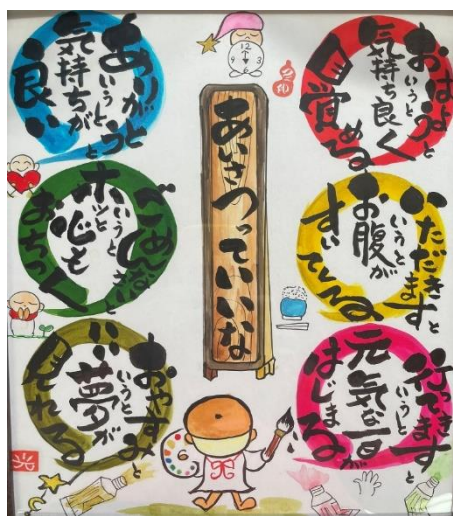 あいさつっていいな
おはようと
いうと
気持ち良く
目覚める
いただきますと
いうと
お腹が
すいてくる
行ってきますと
いうと
元気な一日が
はじまる
ありがとうと
いうと
気持ちが
良い
ごめんなさいと
いうと
ホッと
心も
おちつく
おやすみと
いうと
いい夢が
みれる
12
9 3
6